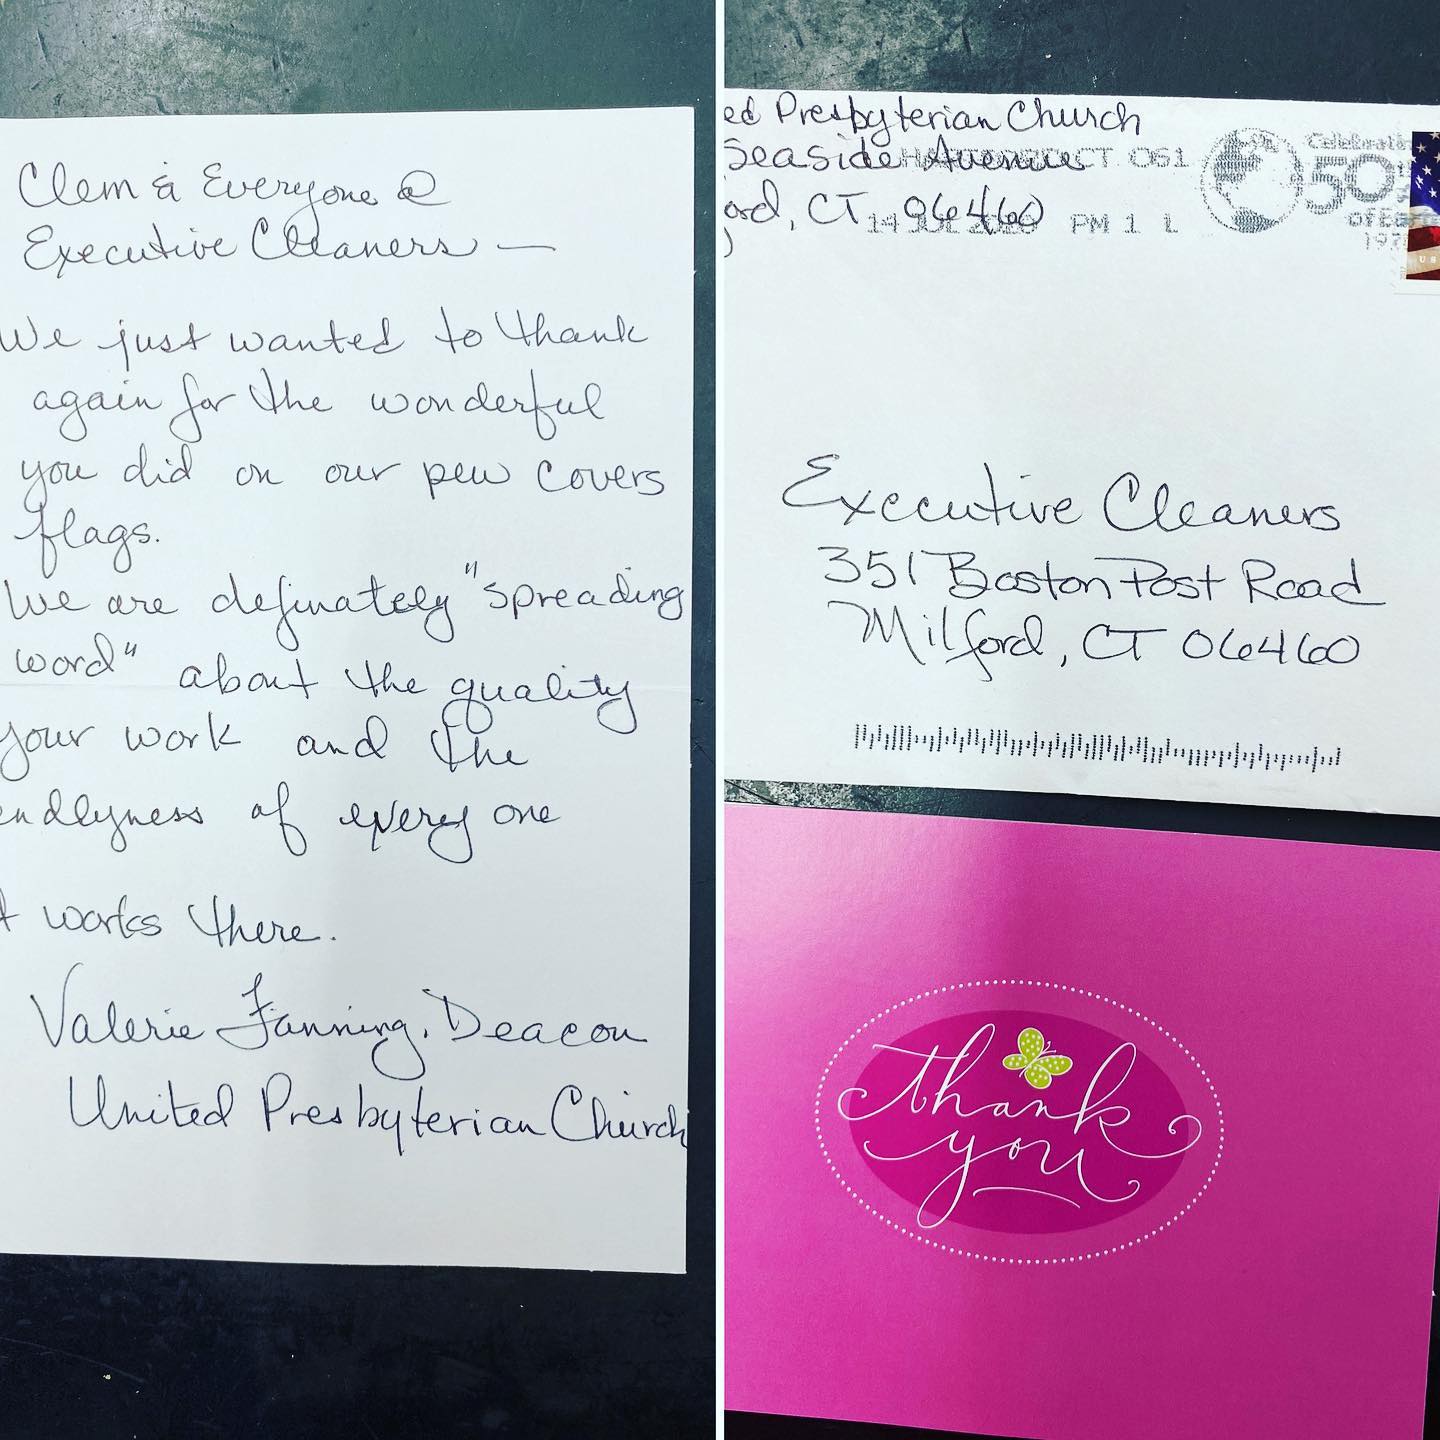 Clem & Everyone @
Executive Cleaners —
We just wanted to thank
again for the wonderful
you did on our pew covers
flags.
We are definately "spreading
word" about the quality
your work and the
endlyness of every one
works there.
Valerie Fanning, Deacon
United Presbyterian Church
ed Presbyterian Church
Seaside Avenue
ord, CT 06460
CT 061
14 JUL 2020 PM 1 L
Celebratin
50
of Ear
197
US
Executive Cleaners
351 Boston Post Road
Milford, CT 06460
thank
you